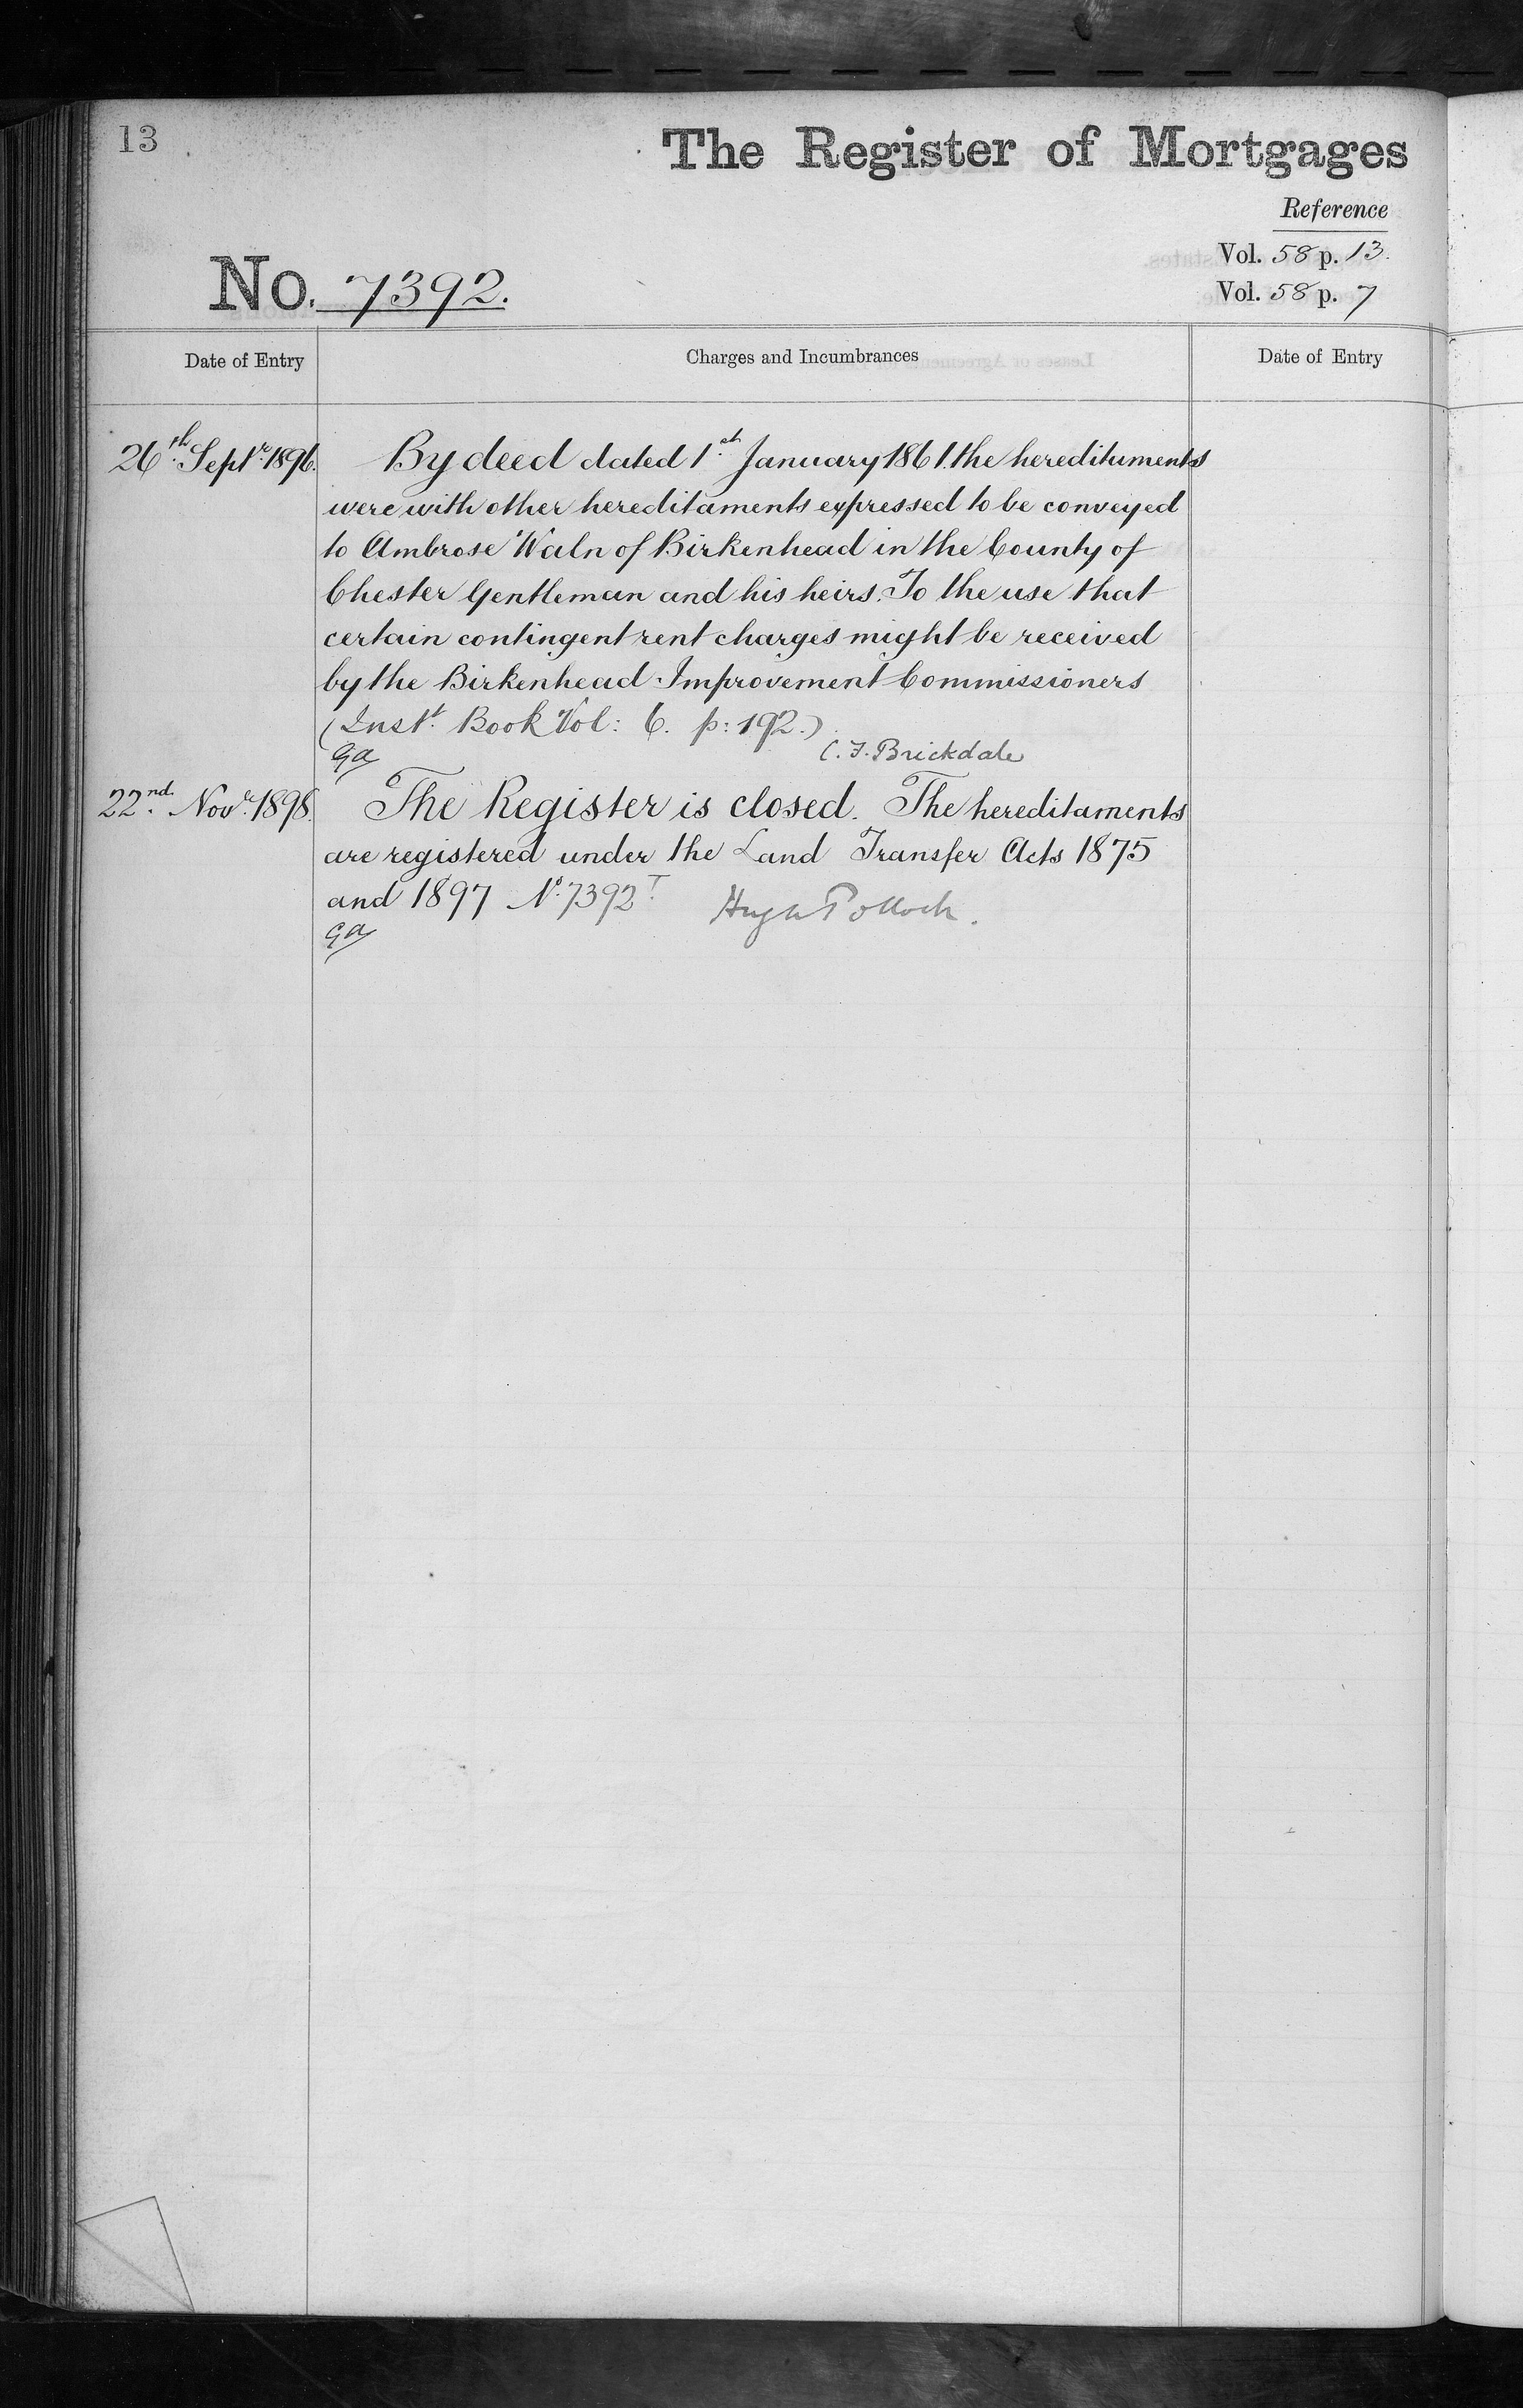 13
The Register of Mortgages
Reference
Vol. 58 p. 13.
Vol. 58 p. 7
No. 7392.
Date of Entry
Charges and Incumbrances
Date of Entry
26th Septr. 1896.
By deed dated 1st January 1861. the hereditaments
were with other hereditaments expressed to be conveyed
to Ambrose Waln of Birkenhead in the County of
Chester Gentleman and his heirs. To the use that
certain contingent rent charges might be received
by the Birkenhead Improvement Commissioners
(Inst. Book Vol: 6. p: 192.)
C. F. Brickdale
22nd. Novr. 1898.
The Register is closed. The hereditaments
are registered under the Land Transfer Acts 1875
and 1897 No. 7392T.
Hugh Pollock.